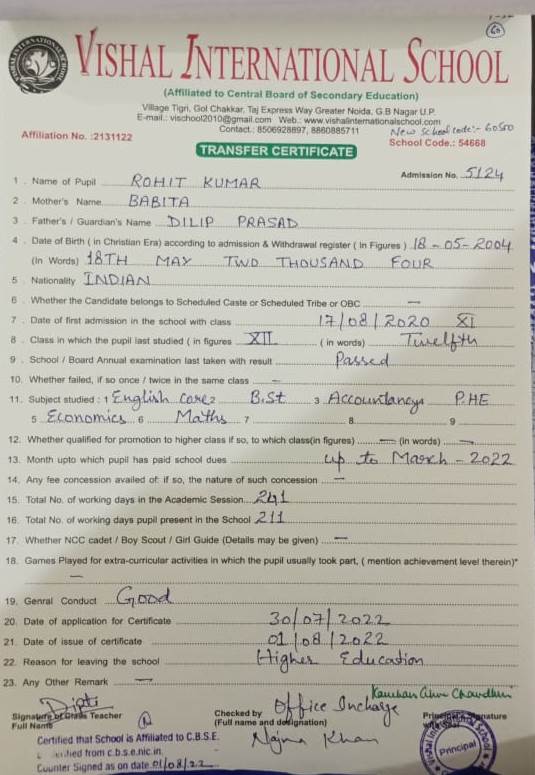 60
VISHAL INTERNATIONAL SCHOOL
(Affiliated to Central Board of Secondary Education)
Village Tigri, Gol Chakkar, Taj Express Way Greater Noida, G.B Nagar U.P.
E-mail.: vischool2010@gmail.com Web.: www.vishalinternationalschool.com
Contact.: 8506928897, 8860885711
New School code:- 60500
Affiliation No. :2131122
School Code.: 54668
TRANSFER CERTIFICATE
Admission No. 5124
1 . Name of Pupil ROHIT KUMAR
2 . Mother's Name BABITA
3 . Father's / Guardian's Name DILIP PRASAD
4 . Date of Birth ( in Christian Era) according to admission & Withdrawal register ( In Figures ) 18-05-2004
(In Words) 18TH MAY TWO THOUSAND FOUR
5 . Nationality INDIAN
6 . Whether the Candidate belongs to Scheduled Caste or Scheduled Tribe or OBC —
7 . Date of first admission in the school with class 17/08/2020 XI
8 . Class in which the pupil last studied ( in figures XII ( in words) Twelfth
9 . School / Board Annual examination last taken with result Passed
10. Whether failed, if so once / twice in the same class —
11. Subject studied : 1 English Core 2 B.St 3 Accountancy 4 P.HE
5 Economics 6 Maths 7 8 9
12. Whether qualified for promotion to higher class if so, to which class(in figures) — (in words) —
13. Month upto which pupil has paid school dues up to March - 2022
14. Any fee concession availed of: if so, the nature of such concession —
15. Total No. of working days in the Academic Session 241
16. Total No. of working days pupil present in the School 211
17. Whether NCC cadet / Boy Scout / Girl Guide (Details may be given) —
18. Games Played for extra-curricular activities in which the pupil usually took part, ( mention achievement level therein)*
—
19. Genral Conduct Good
20. Date of application for Certificate 30/07/2022
21. Date of issue of certificate 01/08/2022
22. Reason for leaving the school Higher Education
23. Any Other Remark —
Dipti
Signature of Class Teacher
Full Name
Checked by Office Incharge
(Full name and designation)
Najma Khan
Principal Signature
Principal
Certified that School is Affiliated to C.B.S.E.
from c.b.s.e.nic.in.
Counter Signed as on date 01/08/22